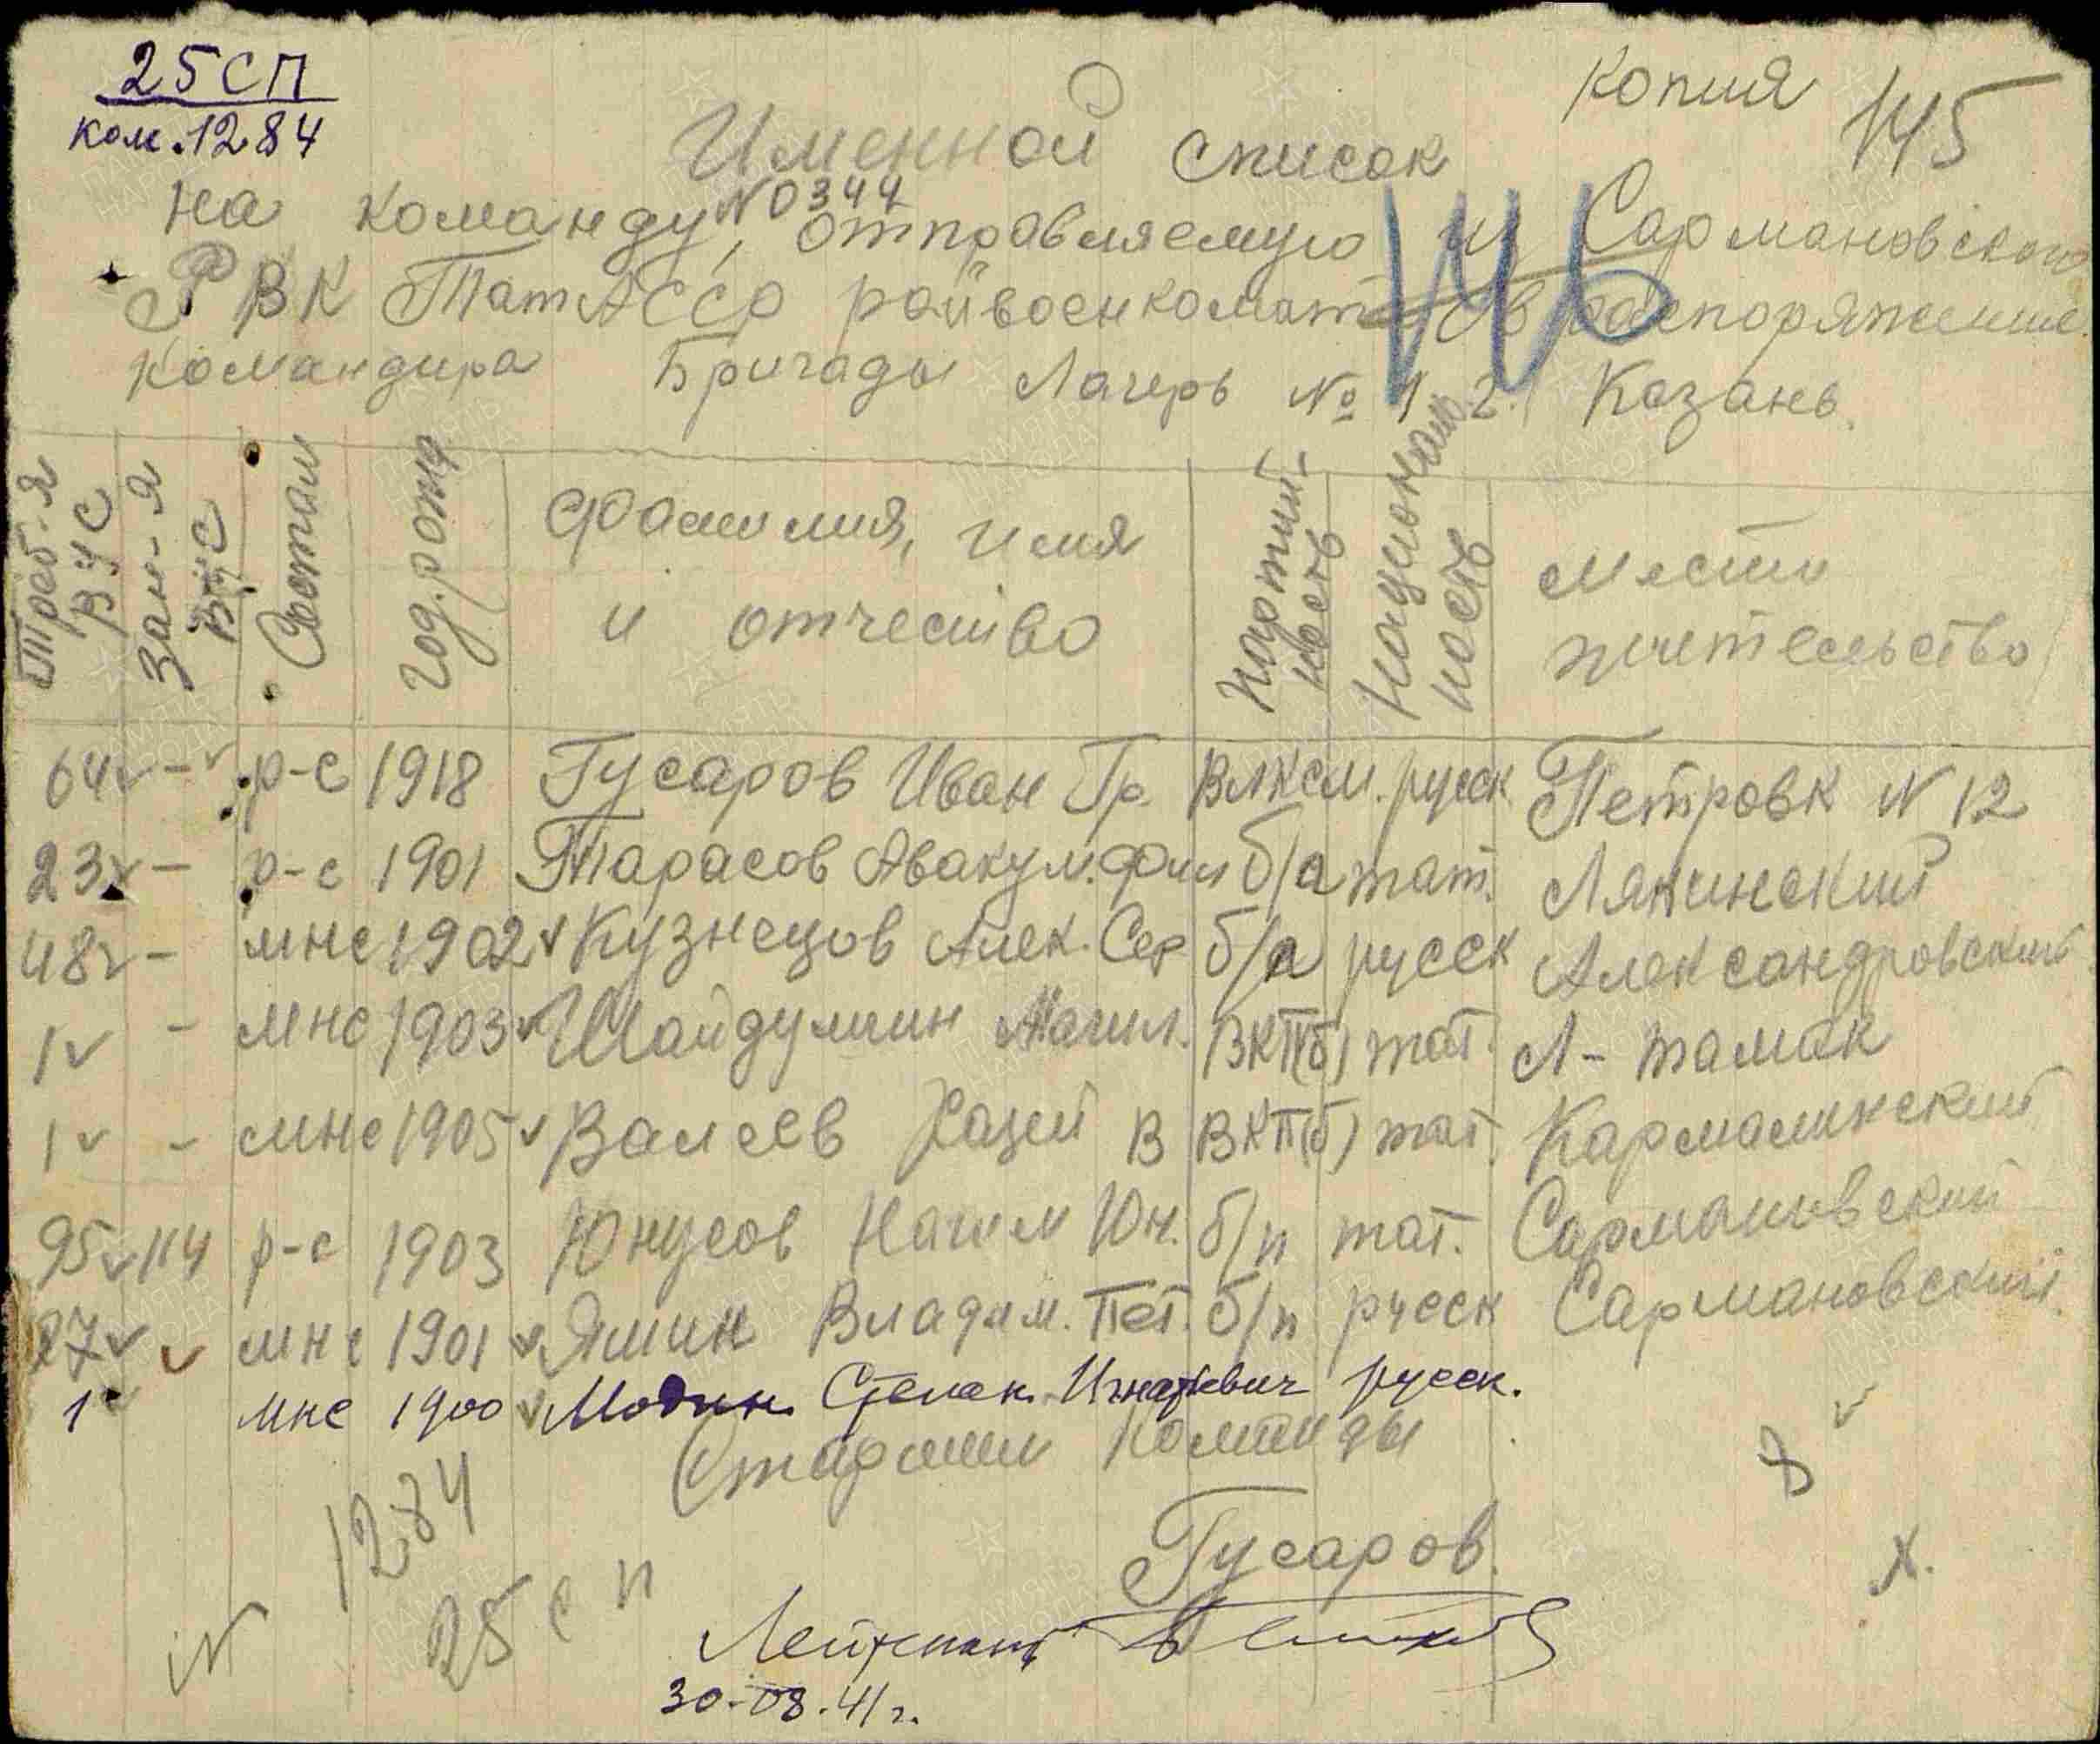 25 СП
ком. 1284
Копия
145
Именной список
на команду N 0344, отправляемую из Сармановского
РВК ТатАССР райвоенкомат в распоряжение
командира Бригады Лагерь № 1 г. Казань.
146
Треб-я ВУС Зан-я ВУС Состав Год. рожд Фамилия, имя и отчество Партийность Националь ность Место жительство
64 - р-с 1918 Гусаров Иван Гр. ВЛКСМ. русск Петровк N 12
23 - р-с 1901 Тарасов Авакум. Фил б/п тат. Лякинский
48 - мнс 1902 Кузнецов Алек. Сер б/п русск Александровский
1 - мнс 1903 Шайдуллин ВКП(б) тат. Л-тамак
1 - мнс 1905 Валеев В ВКП(б) тат. Кармалинский
95 114 р-с 1903 Юнусов Нагим Юн. б/п тат. Сармановский
27 мнс 1901 Яшин Владим. Пет. б/п русск Сармановский.
1 мнс 1900 Модин Степан Игнатьевич русск.
Старший команды
8
1284
Гусаров.
25 сп
Лейтенант
30-08.41 г.